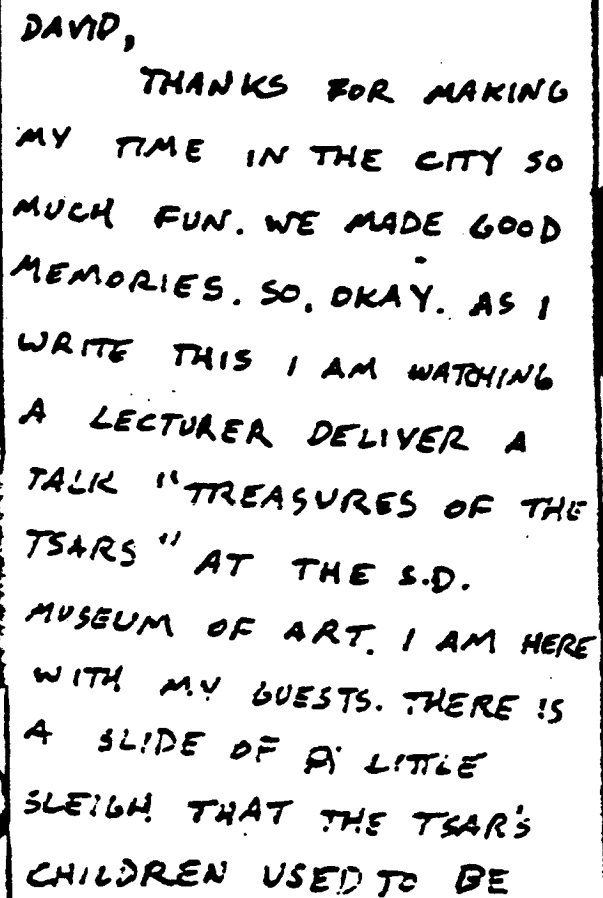 DAVID,
THANKS FOR MAKING
MY TIME IN THE CITY SO
MUCH FUN. WE MADE GOOD
MEMORIES. SO, OKAY. AS I
WRITE THIS I AM WATCHING
A LECTURER DELIVER A
TALK "TREASURES OF THE
TSARS" AT THE S.D.
MUSEUM OF ART. I AM HERE
WITH MY GUESTS. THERE IS
A SLIDE OF A LITTLE
SLEIGH THAT THE TSAR'S
CHILDREN USED TO BE